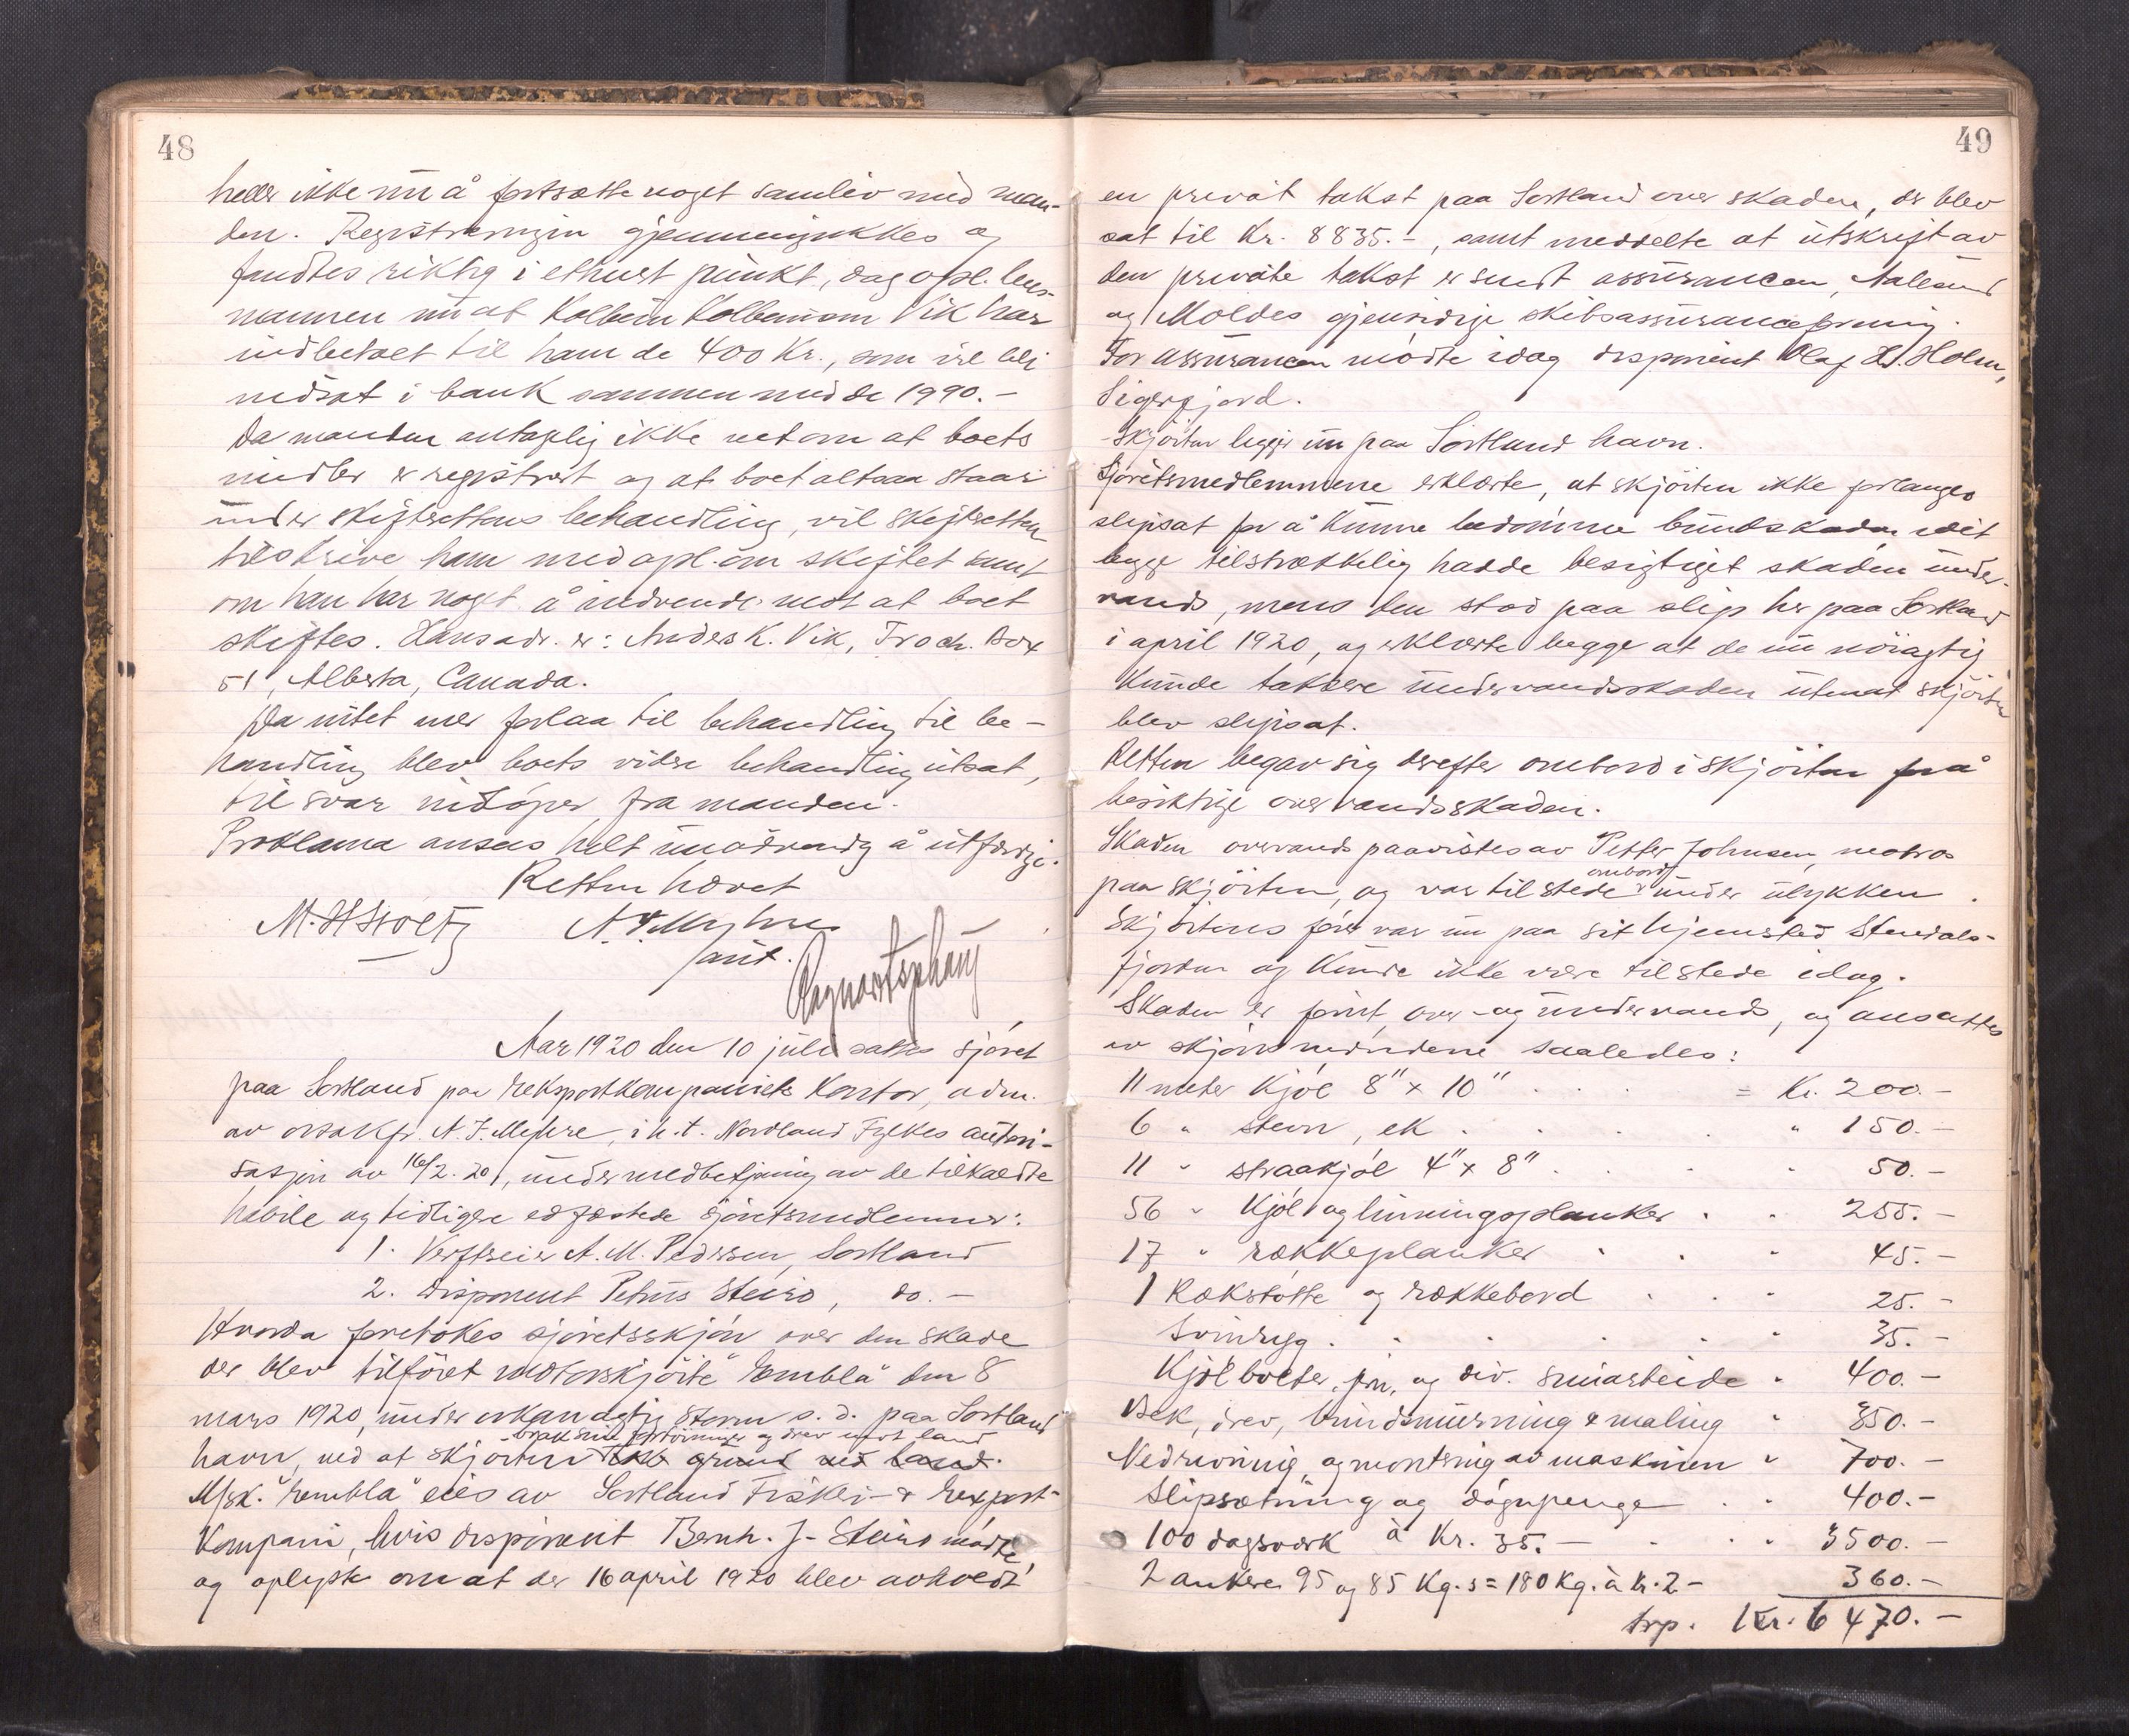 48
heller ikke nu å fortsætte noget samliv med man-
den. Registreringen gjennemgikkes og
fandtes riktig i ethvert punkt, dog opl. lens-
mannen nu at Kolbein Kolbeinsen Vik har
indbetalt til ham de 400 Kr., som vil bli
indsat i bank sammen med de 1990.-
Da manden antagelig ikke vet om at boets
midler er registrert og at boet altsaa staar
under skifterettens behandling, vil skifteretten
tilskrive ham med opl. om skiftet samt
om han har noget å indvende mot at boet
skiftes. Hans adr. er: Anders K. Vik, Box
51, Alberta, Canada.
Da intet mer forlaa til behandling til be-
handling blev boets videre behandling utsat,
til svar indløper fra manden.
Proklama ansees helt unødvendig å utfærdige.
Retten hævet
M. H Stoltz A. F. Myhre
aut.
Aar 1920 den 10 juli sattes sjøret
paa Sortland paa Eksportkompaniets Kontor, adm.
av o.r.sakf. A. F. Myhre, i h.t. Nordland Fylkes autori-
sasjon av 16/2. 20, under medbetjening av de tilkaldte
habile og tidligere edfæstede sjøretsmedlemmer:
1. Verftseier A. M. Pedersen, Sortland
2. Disponent Petrus Steiro, do. -
Hvorda foretokes sjøretsskjøn over den skade
der blev tilføiet motorskjøite "Embla" den 8
mars 1920, under orkanagtig storm s. d. paa Sortland
brak sine fortøininger og drev mot land
havn, ved at skjøiten tok grund ved land.
M/sk. "Embla" eies av Sortland Fiskeri- & Export-
Kompani, hvis disponent Bernh. J. Steiro møtte,
og oplyste om at der 16 april 1920 blev avholdt
49
en privat takst paa Sortland over skaden, der blev
sat til Kr. 8835.-, samt meddelte at utskrift av
den private takst er sendt assurancen, Aalesund
og Moldes gjensidige skibsassuranceforening.
For assurancen møtte idag disponent Olaf H. Holm,
Sigerfjord.
Skjøiten ligger nu paa Sortland havn.
Sjøretsmedlemmene erklærte, at skjøiten ikke forlanges
slipsat for å kunne bedømme bundskaden, idet
begge tilstrækkelig hadde besigtiget skaden under-
vands, mens den stod paa slip her paa Sortland
i april 1920, og erklærte begge at de nu nøiagtig
kunde taksere undervandsskaden uten at skjøiten
blev slipsat.
Retten begav sig derefter ombord i skjøiten for å
besiktige overvandsskaden.
Skaden overvands paavistes av Petter Johnsen, matros
ombord
paa skjøiten, og var tilstede under ulykken.
Skjøitens fører var nu paa sit hjemsted Steudals-
fjorden og kunde ikke være tilstede idag.
Skaden er forint over- og undervands, og ansattes
av skjønsmændene saaledes:
11 meter Kjøl 8" x 10" = Kr. 200.-
6 " stevn, ek " 150.-
11 " straakjøl 4" x 8" 50.-
56 " Kjøl og linningsplanker 255.-
17 " rækkeplanker 45.-
1 Rækstøtte og rækkebord 25.-
Svinryg 35.-
Kjølbolter, og div. smiarbeide 400.-
Bek, drev, bundsmurning & maling 350.-
Nedrivning og montering av maskinen 700.-
Slipsætning og døgnpenge 400.-
100 dagsverk à Kr. 35.- 3500.-
2 ankere 95 og 85 Kg.s = 180 Kg. à Kr. 2- 360.-
trp. Kr. 6470.-